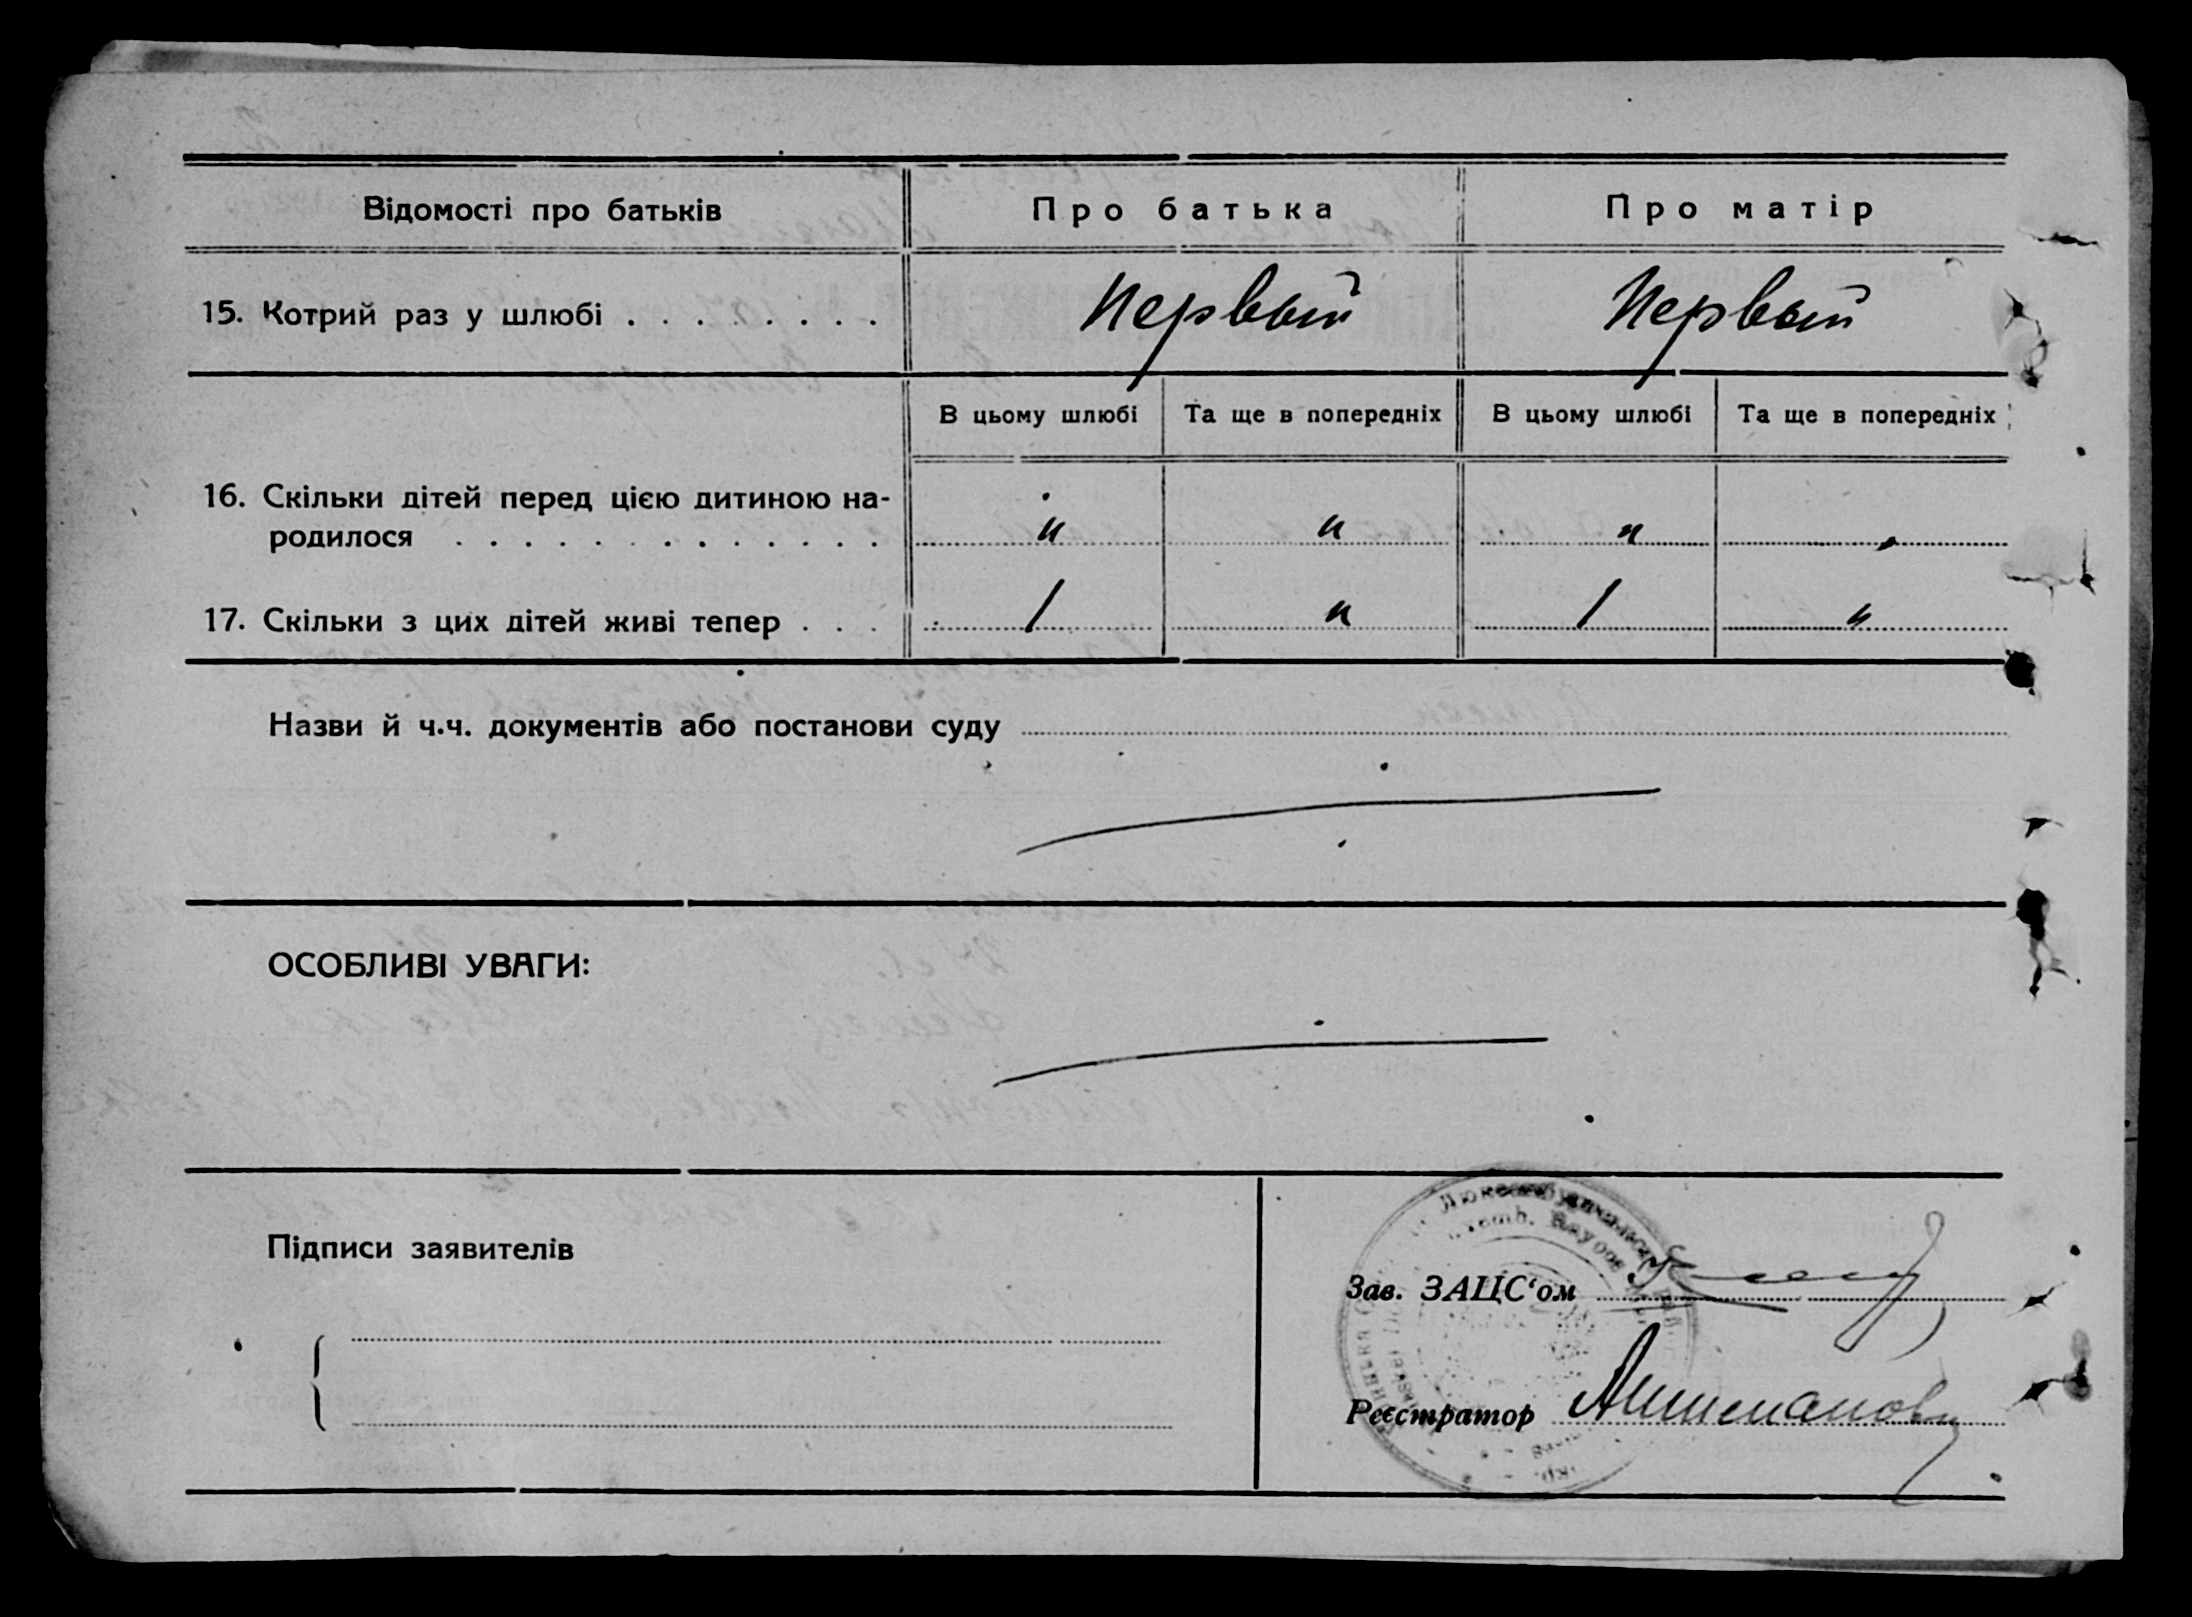 Відомості про батьків Про батька Про матір
15. Котрий раз у шлюбі . . . . . . . . Первый Первый
В цьому шлюбі Та ще в попередніх В цьому шлюбі Та ще в попередніх
16. Скільки дітей перед цією дитиною на-
родилося . . . . . . . . . . . . . " " "
17. Скільки з цих дітей живі тепер . . . 1 " 1 "
Назви й ч.ч. документів або постанови суду
ОСОБЛИВІ УВАГИ:
Підписи заявителів
Зав. ЗАЦС‘ом
Реєстратор